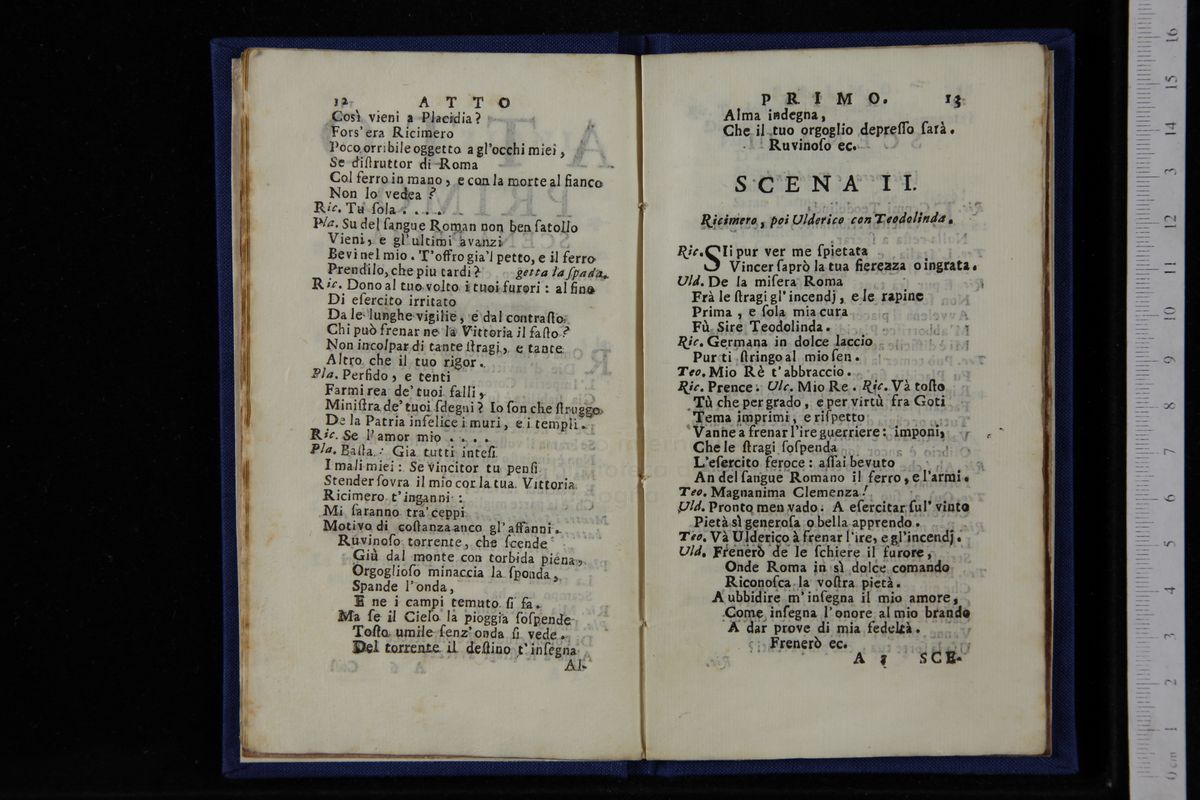 12 ATTO
Così vieni a Placidia?
Fors' era Ricimero
Poco orribile oggetto a gl'occhi miei,
Se diſtruttor di Roma
Col ferro in mano, e con la morte al fianco
Non lo vedea?
Ric. Tu ſola . . . .
Pla. Su del ſangue Roman non ben ſatollo
Vieni, e gl'ultimi avanzi
Bevi nel mio. T'offro gia'l petto, e il ferro
Prendilo, che piu tardi? getta la ſpada.
Ric. Dono al tuo volto i tuoi furori: al fine
Di eſercito irritato
Da le lunghe vigilie, e dal contraſto
Chi può frenar ne la Vittoria il faſto?
Non incolpar di tante ſtragi, e tante
Altro che il tuo rigor.
Pla. Perfido, e tenti
Farmi rea de' tuoi falli,
Miniſtra de' tuoi ſdegni? Io ſon che ſtruggo
De la Patria infelice i muri, e i templi.
Ric. Se l'amor mio . . . .
Pla. Baſta. Gia tutti inteſi
I mali miei: Se Vincitor tu penſi
Stender ſovra il mio cor la tua Vittoria
Ricimero t'inganni:
Mi ſaranno tra' ceppi
Motivo di coſtanza anco gl'affanni.
Ruvinoſo torrente, che ſcende
Giù dal monte con torbida piena,
Orgoglioſo minaccia la ſponda,
Spande l'onda,
E ne i campi temuto ſi fa.
Ma ſe il Cielo la pioggia ſoſpende
Toſto umile ſenz'onda ſi vede.
Del torrente il deſtino t'inſegna
Al-
PRIMO. 13
Alma indegna,
Che il tuo orgoglio depreſſo ſarà.
Ruvinoſo ec.
SCENA II.
Ricimero, poi Ulderico con Teodolinda.
Ric. SIi pur ver me ſpietata
Vincer ſaprò la tua fierezza o ingrata.
Uld. De la miſera Roma
Frà le ſtragi gl' incendj, e le rapine
Prima, e ſola mia cura
Fù Sire Teodolinda.
Ric. Germana in dolce laccio
Pur ti ſtringo al mio ſen.
Teo. Mio Rè t'abbraccio.
Ric. Prence. Ulc. Mio Re. Ric. Và toſto
Tù che per grado, e per virtù fra Goti
Tema imprimi, e riſpetto
Vanne a frenar l'ire guerriere: imponi,
Che le ſtragi ſoſpenda
L'eſercito feroce: aſſai bevuto
An del ſangue Romano il ferro, e l'armi.
Teo. Magnanima Clemenza!
Uld. Pronto men vado. A eſercitar ſul' vinto
Pietà sì generoſa o bella apprendo.
Teo. Và Ulderico à frenar l'ire, e gl'incendj.
Uld. Frenerò de le ſchiere il furore,
Onde Roma in sì dolce comando
Riconoſca la voſtra pietà.
A ubbidire m' inſegna il mio amore,
Come inſegna l'onore al mio brando
A dar prove di mia fedeltà.
Frenerò ec.
A 7 SCE-